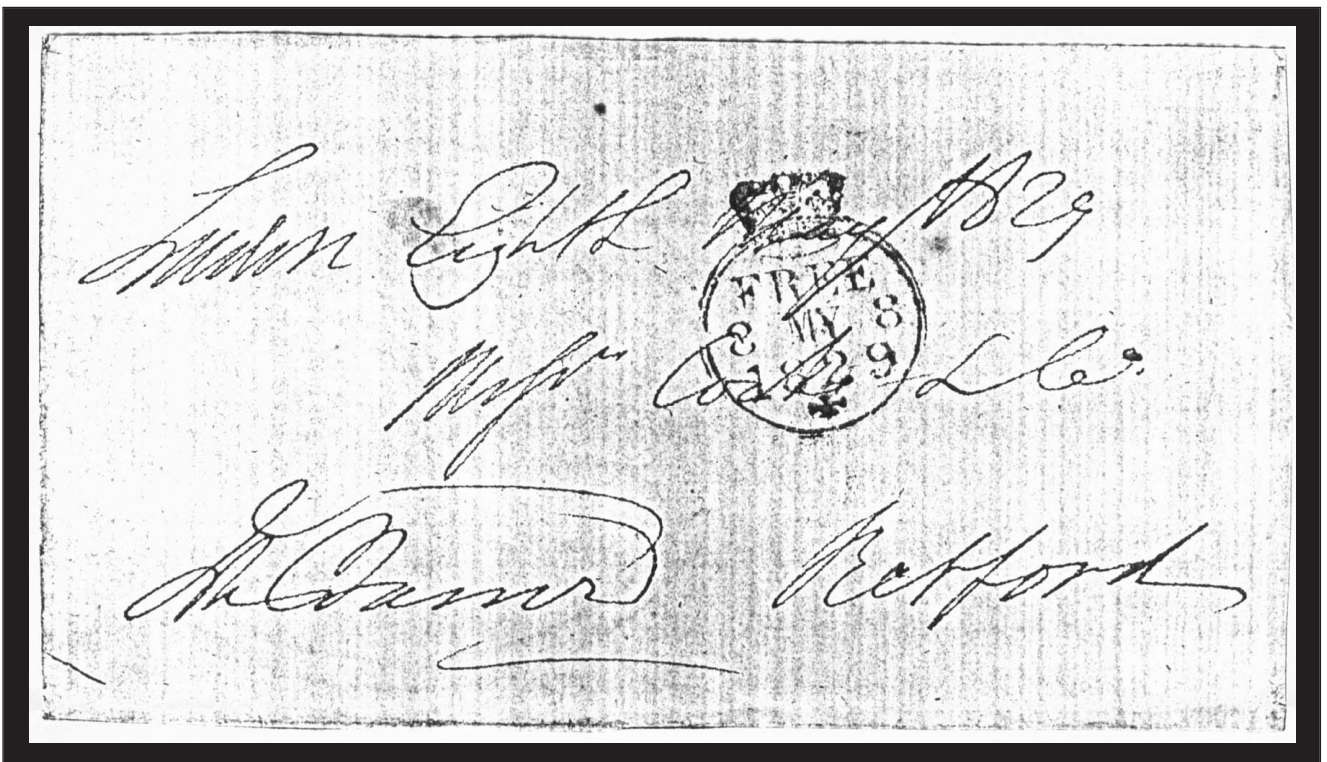 London Eighth May 1829
FREE
8 MY 8
1829
Messrs Cooke & Co.
Retford